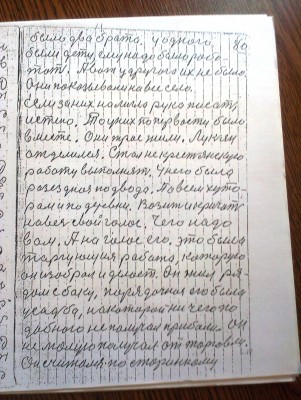 было два брата. У одного 80
были дети, ему надо было робо-
тот. А вот у другого их не было.
Они показывали на все село.
Если за них налисть руко писать
истено. То у них по первости было
в месте. Они трое жили. Лукьян
отделился. Стал не крестьянскую
работу выполнять. У него была
разездная подвода. По всем хуто-
рам и по деревни. Возит и кричать
на весь свой голос. Чего надо
вам. А на голос его, это была
таргующия работа, которую
он избрал и делает. Он жил ря-
дом с баку, порядочная его была
усадба, на которой ни чего по
добного не получал прибыли. Он
не малую получал от торговли.
Он считался по старинному